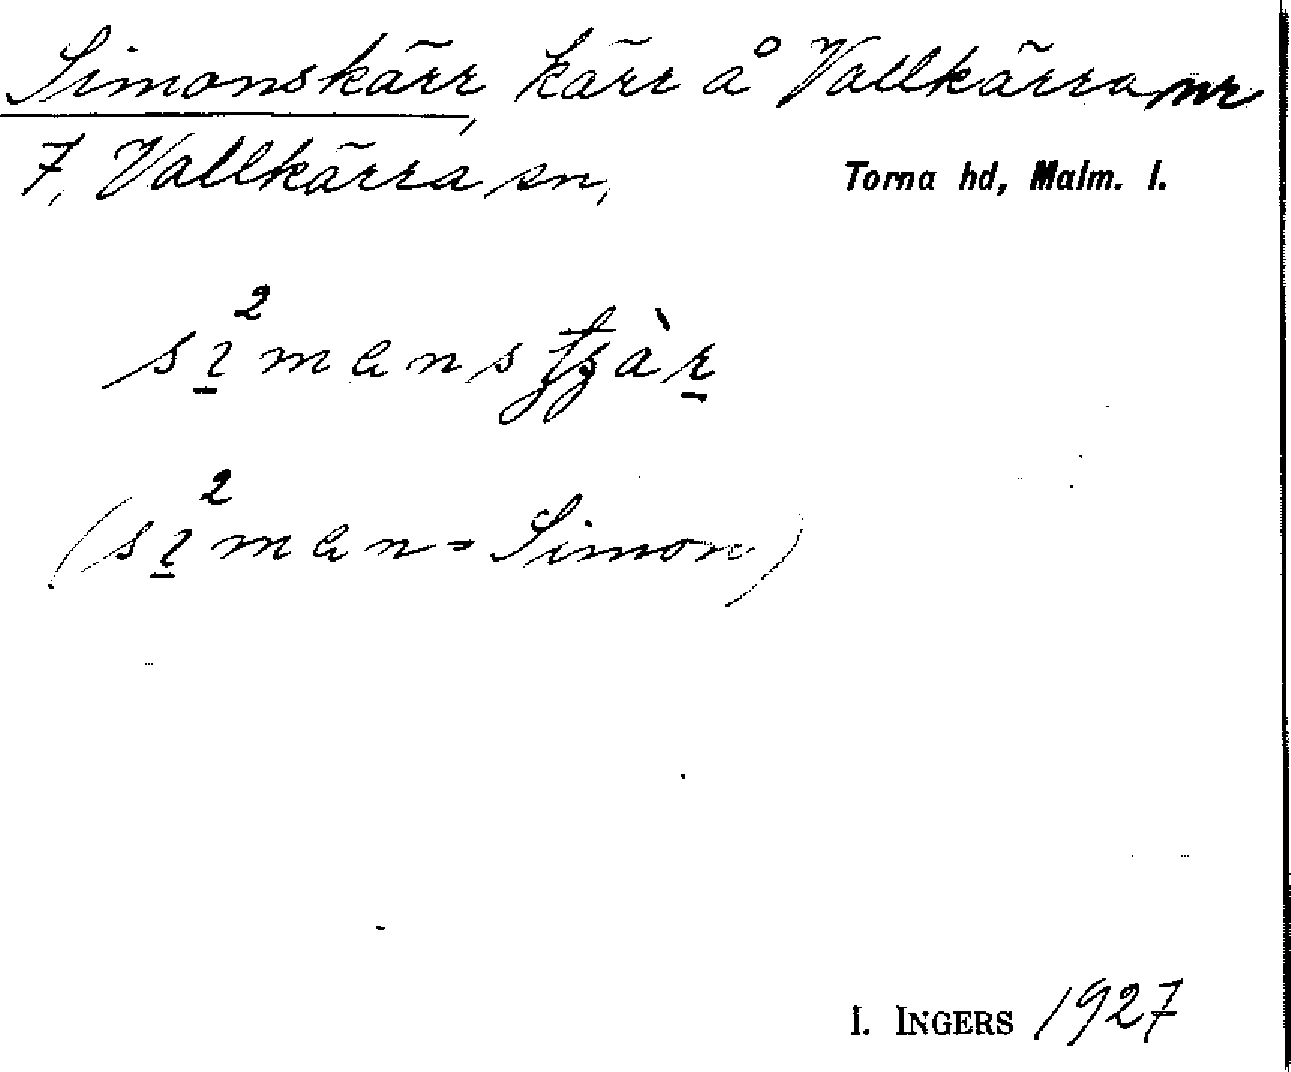 Simonskärr, kärr å Vallkärra nr
7, Vallkärra sn, Torna hd, Malm. l.
sı̱²manstʃàṟ
(sı̱²man = Simon)
I. INGERS 1927